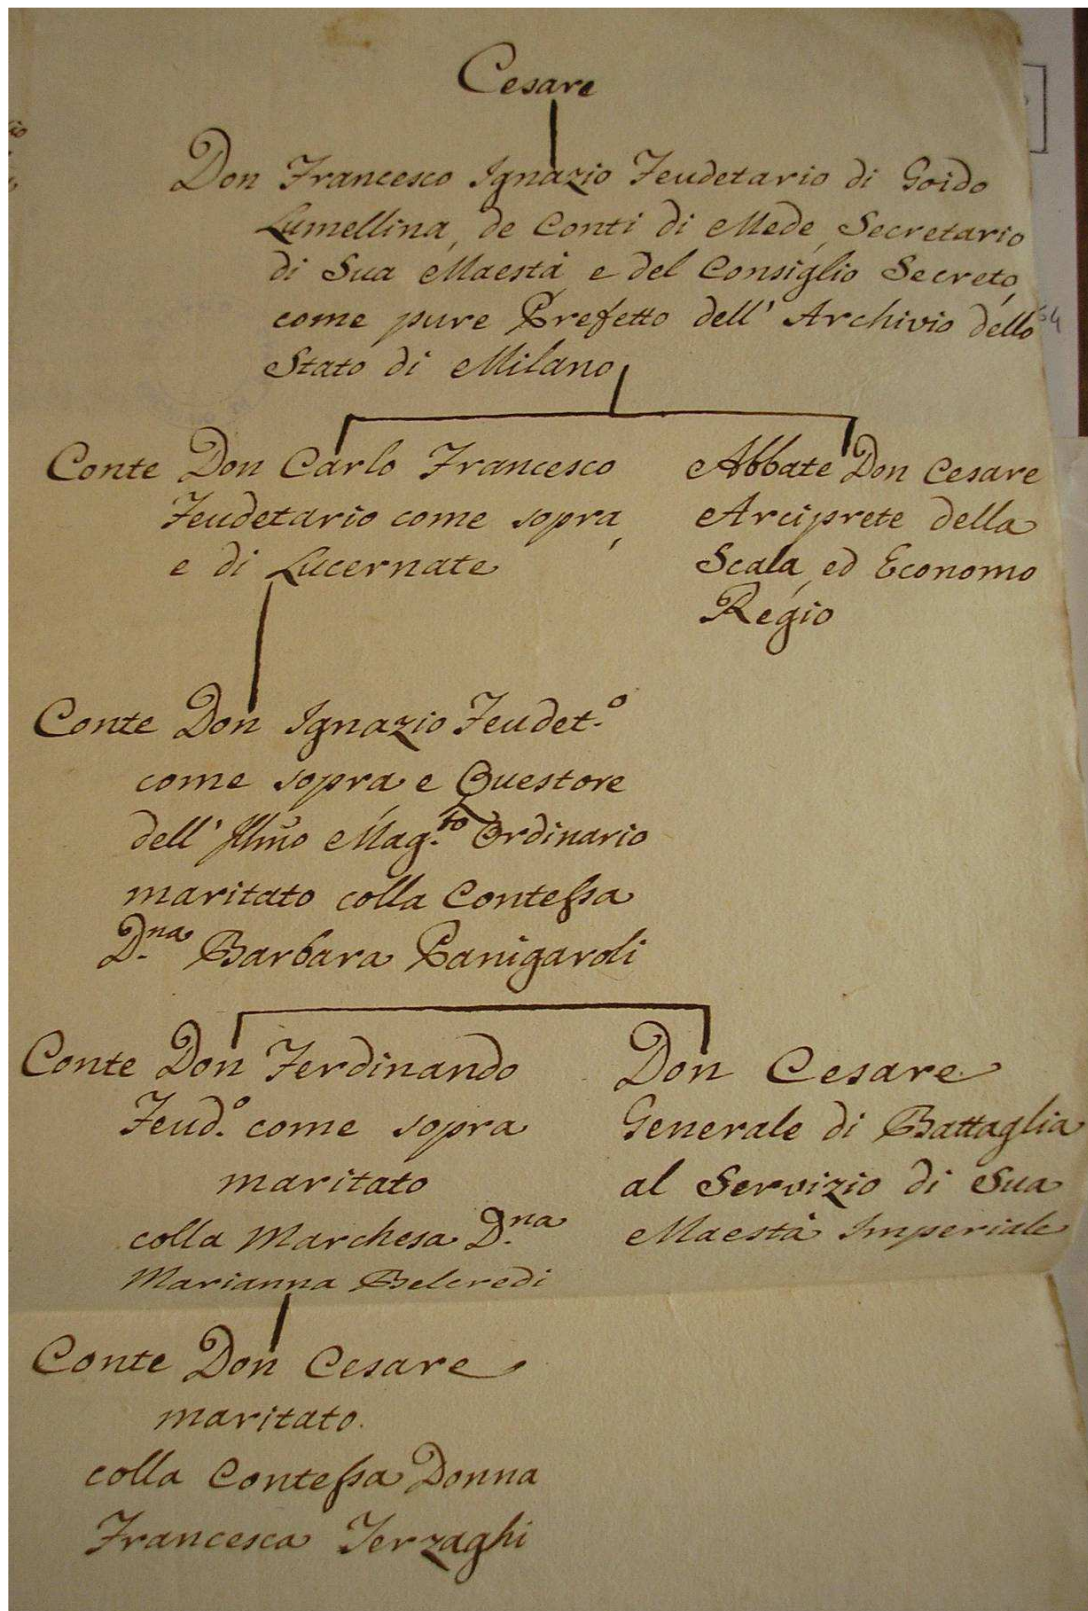 Cesare
Don Francesco Ignazio Feudetario di Goido
Lumellina, de Conti di Mede, Secretario
di Sua Maestà e del Consiglio Secreto,
come pure Prefetto dell' Archivio dello
Stato di Milano
Conte Don Carlo Francesco
Feudetario come sopra,
e di Lucernate
Abbate Don Cesare
Arciprete della
Scala, ed Economo
Regio
Conte Don Ignazio Feudet.º
come sopra e Questore
dell' Illmo Mag.to Ordinario
maritato colla Contessa
D.na Barbara Panigaroli
Conte Don Ferdinando
Feud.º come sopra
maritato
colla Marchesa D.na
Marianna Belcredi
Don Cesare
Generale di Battaglia
al Servizio di Sua
Maestà Imperiale
Conte Don Cesare
maritato
colla Contessa Donna
Francesca Terzaghi